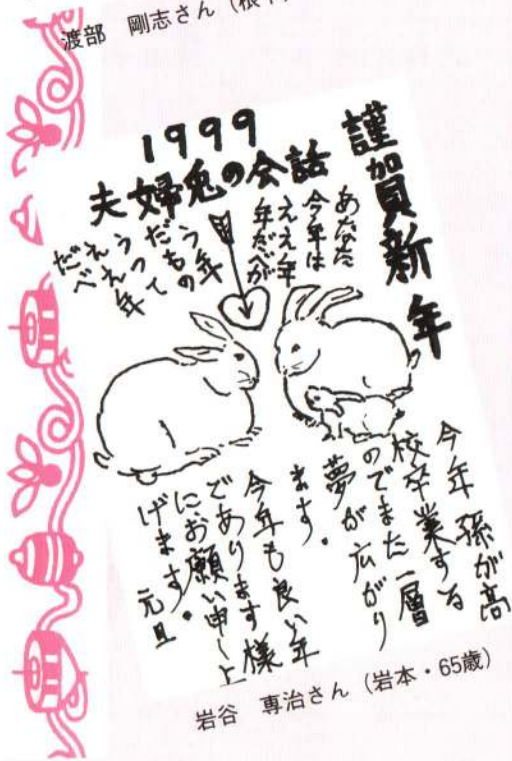 渡部　剛志さん（根
謹賀新年
1999
夫婦兎の会話
あなた
今年は
ええ年
年だべが
う年
だもの
うって
ええ年
だべ
今年孫が高
校卒業する
のでまた一層
夢が広がり
ます。
今年も良い年
であります様
にお願い申し上
げます。
元旦
岩谷　専治さん（岩本・65歳）